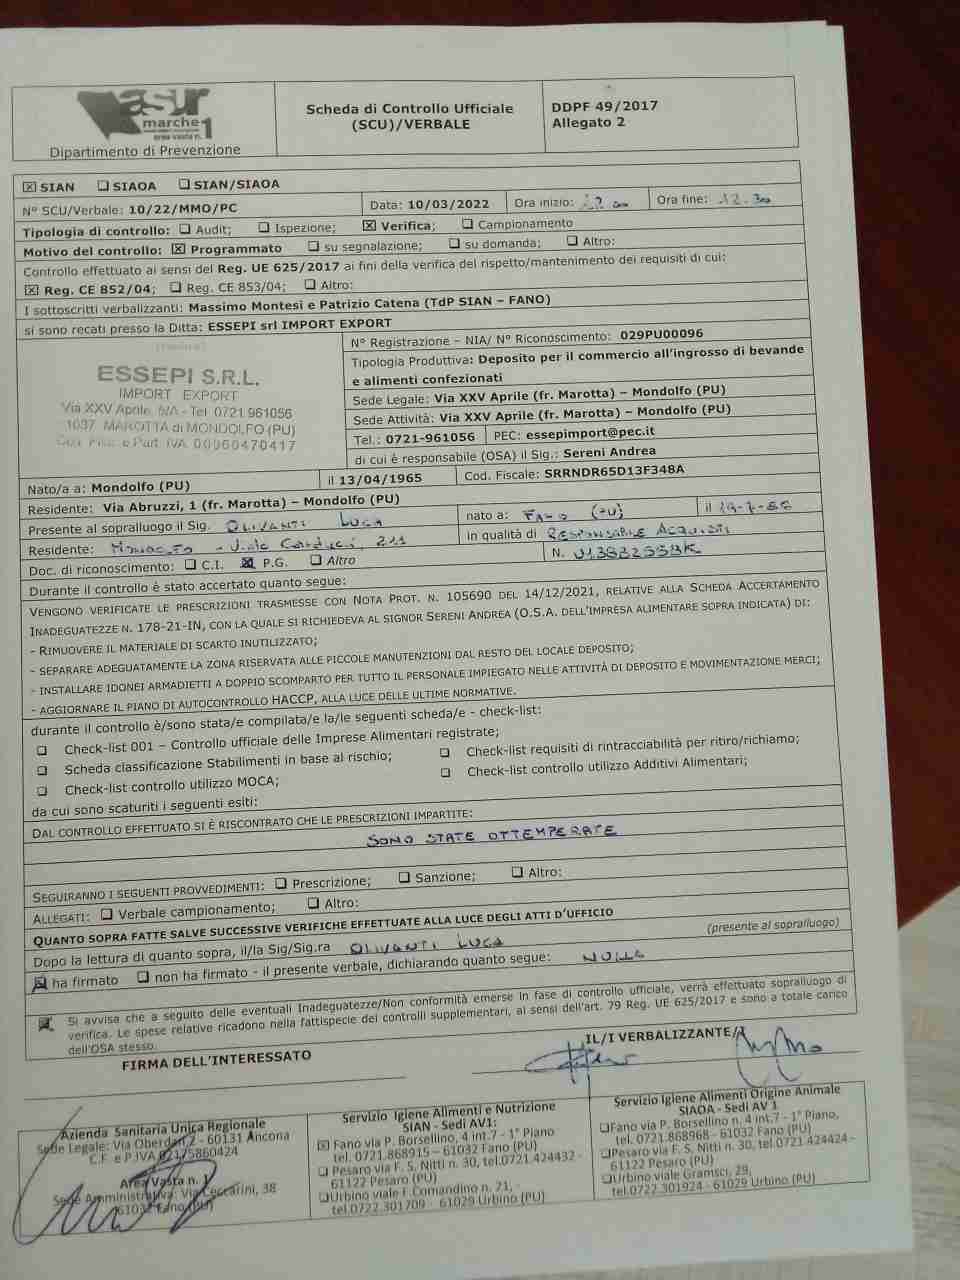 asur
marche 1
area vasta n.
Dipartimento di Prevenzione
Scheda di Controllo Ufficiale
(SCU)/VERBALE
DDPF 49/2017
Allegato 2
☒ SIAN ☐ SIAOA ☐ SIAN/SIAOA
N° SCU/Verbale: 10/22/MMO/PC Data: 10/03/2022 Ora inizio: Ora fine: 12.30
Tipologia di controllo: ☐ Audit; ☐ Ispezione; ☒ Verifica; ☐ Campionamento
Motivo del controllo: ☒ Programmato ☐ su segnalazione; ☐ su domanda; ☐ Altro:
Controllo effettuato ai sensi del Reg. UE 625/2017 ai fini della verifica del rispetto/mantenimento dei requisiti di cui:
☒ Reg. CE 852/04; ☐ Reg. CE 853/04; ☐ Altro:
I sottoscritti verbalizzanti: Massimo Montesi e Patrizio Catena (TdP SIAN – FANO)
si sono recati presso la Ditta: ESSEPI srl IMPORT EXPORT
(timbro)
ESSEPI S.R.L.
IMPORT EXPORT
Via XXV Aprile, 5/A - Tel. 0721 961056
1037 MAROTTA di MONDOLFO (PU)
Cod. Fisc. e Part. IVA 00960470417
N° Registrazione – NIA/ N° Riconoscimento: 029PU00096
Tipologia Produttiva: Deposito per il commercio all'ingrosso di bevande
e alimenti confezionati
Sede Legale: Via XXV Aprile (fr. Marotta) – Mondolfo (PU)
Sede Attività: Via XXV Aprile (fr. Marotta) – Mondolfo (PU)
Tel.: 0721-961056 PEC: essepimport@pec.it
di cui è responsabile (OSA) il Sig.: Sereni Andrea
Nato/a a: Mondolfo (PU) il 13/04/1965 Cod. Fiscale: SRRNDR65D13F348A
Residente: Via Abruzzi, 1 (fr. Marotta) – Mondolfo (PU)
Presente al sopralluogo il Sig. OLIVANTI LUCA nato a: FANO (PU) il
Residente: Viale Carducci, 211 in qualità di RESPONSABILE ACQUISTI
Doc. di riconoscimento: ☐ C.I. ☒ P.G. ☐ Altro N.
Durante il controllo è stato accertato quanto segue:
VENGONO VERIFICATE LE PRESCRIZIONI TRASMESSE CON NOTA PROT. N. 105690 DEL 14/12/2021, RELATIVE ALLA SCHEDA ACCERTAMENTO
INADEGUATEZZE N. 178-21-IN, CON LA QUALE SI RICHIEDEVA AL SIGNOR SERENI ANDREA (O.S.A. DELL'IMPRESA ALIMENTARE SOPRA INDICATA) DI:
- RIMUOVERE IL MATERIALE DI SCARTO INUTILIZZATO;
- SEPARARE ADEGUATAMENTE LA ZONA RISERVATA ALLE PICCOLE MANUTENZIONI DAL RESTO DEL LOCALE DEPOSITO;
- INSTALLARE IDONEI ARMADIETTI A DOPPIO SCOMPARTO PER TUTTO IL PERSONALE IMPIEGATO NELLE ATTIVITÀ DI DEPOSITO E MOVIMENTAZIONE MERCI;
- AGGIORNARE IL PIANO DI AUTOCONTROLLO HACCP, ALLA LUCE DELLE ULTIME NORMATIVE.
durante il controllo è/sono stata/e compilata/e la/le seguenti scheda/e - check-list:
☐ Check-list 001 – Controllo ufficiale delle Imprese Alimentari registrate;
☐ Scheda classificazione Stabilimenti in base al rischio; ☐ Check-list requisiti di rintracciabilità per ritiro/richiamo;
☐ Check-list controllo utilizzo MOCA; ☐ Check-list controllo utilizzo Additivi Alimentari;
da cui sono scaturiti i seguenti esiti:
DAL CONTROLLO EFFETTUATO SI È RISCONTRATO CHE LE PRESCRIZIONI IMPARTITE:
SONO STATE OTTEMPERATE
SEGUIRANNO I SEGUENTI PROVVEDIMENTI: ☐ Prescrizione; ☐ Sanzione; ☐ Altro:
ALLEGATI: ☐ Verbale campionamento; ☐ Altro:
QUANTO SOPRA FATTE SALVE SUCCESSIVE VERIFICHE EFFETTUATE ALLA LUCE DEGLI ATTI D'UFFICIO
Dopo la lettura di quanto sopra, il/la Sig/Sig.ra OLIVANTI LUCA (presente al sopralluogo)
☒ ha firmato ☐ non ha firmato - il presente verbale, dichiarando quanto segue: NULLA
☒ Si avvisa che a seguito delle eventuali Inadeguatezze/Non conformità emerse in fase di controllo ufficiale, verrà effettuato sopralluogo di
verifica. Le spese relative ricadono nella fattispecie dei controlli supplementari, ai sensi dell'art. 79 Reg. UE 625/2017 e sono a totale carico
dell'OSA stesso.
FIRMA DELL'INTERESSATO
IL/I VERBALIZZANTE/I
Azienda Sanitaria Unica Regionale
Sede Legale: Via Oberdan, 2 - 60131 Ancona
C.F. e P.IVA 02175860424
Area Vasta n. 1
Sede Amministrativa: Via Ceccarini, 38
61032 Fano (PU)
Servizio Igiene Alimenti e Nutrizione
SIAN - Sedi AV1:
☒ Fano via P. Borsellino, 4 int.7 - 1° Piano
tel. 0721.868915 – 61032 Fano (PU)
☐ Pesaro via F. S. Nitti n. 30, tel.0721.424432 -
61122 Pesaro (PU)
☐ Urbino viale F. Comandino n. 21, -
tel.0722.301709 - 61029 Urbino (PU)
Servizio Igiene Alimenti Origine Animale
SIAOA - Sedi AV 1
☐ Fano via P. Borsellino n. 4 int.7 - 1° Piano,
tel. 0721.868968 - 61032 Fano (PU)
☐ Pesaro via F. S. Nitti n. 30, tel.0721.424424 -
61122 Pesaro (PU)
☐ Urbino viale Gramsci, 29,
tel.0722.301924 - 61029 Urbino (PU)